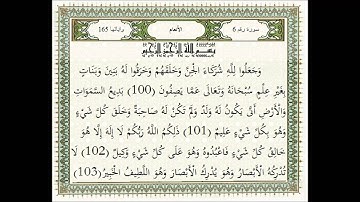 سورة رقم 6
الأنعام
رواياتها 165
بسم الله الرحمن الرحيم
وَجَعَلُوا لِلَّهِ شُرَكَاءَ الْجِنَّ وَخَلَقَهُمْ وَخَرَقُوا لَهُ بَنِينَ وَبَنَاتٍ
بِغَيْرِ عِلْمٍ سُبْحَانَهُ وَتَعَالَى عَمَّا يَصِفُونَ (100) بَدِيعُ السَّمَوَاتِ
وَالْأَرْضِ أَنَّى يَكُونُ لَهُ وَلَدٌ وَلَمْ تَكُنْ لَهُ صَاحِبَةٌ وَخَلَقَ كُلَّ شَيْءٍ
وَهُوَ بِكُلِّ شَيْءٍ عَلِيمٌ (101) ذَلِكُمُ اللَّهُ رَبُّكُمْ لَا إِلَهَ إِلَّا هُوَ
خَالِقُ كُلِّ شَيْءٍ فَاعْبُدُوهُ وَهُوَ عَلَى كُلِّ شَيْءٍ وَكِيلٌ (102) لَا
تُدْرِكُهُ الْأَبْصَارُ وَهُوَ يُدْرِكُ الْأَبْصَارَ وَهُوَ اللَّطِيفُ الْخَبِيرُ (103)